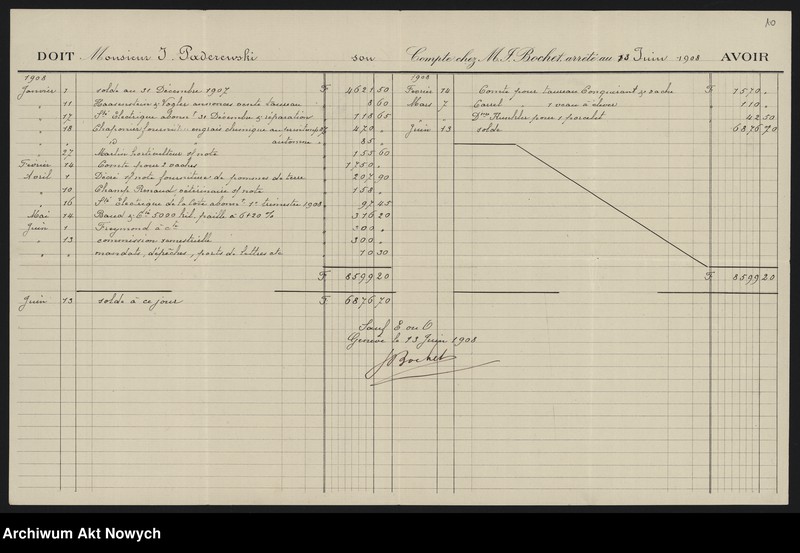 10
DOIT Monsieur I. Paderewski son Compte chez M. J. Bochet, arrêté au 13 Juin 1908 AVOIR
1908
Janvier 1 solde au 31 Décembre 1907 F. 4621 50
" 11 Haasenstein & Vogler annonces vente taureau " 8 60
" 17 Sté Electrique abont 31 Décembre & réparation " 118 65
" 18 Chaponnier fourn engrais chimique au printemps " 470 "
" " " automne " 85 "
" 27 Martin horticulteur s/ note " 155 60
Février 14 Compte pour 2 vaches " 1750 "
Avril 1 s/ note fourniture de pommes de terre " 207 90
" 10 Champ Renaud vétérinaire s/ note " 158 "
" 16 Sté Electrique de la Côte abonnt 1er trimestre 1908 " 97 45
Mai 14 Baud & Cie 5000 kil. paille à 6+20 % " 316 20
Juin 1 Freymond à cte " 300 "
" 13 commission semestrielle " 300 "
" " mandats, dépêches, ports de lettres etc " 10 30
F. 8599 20
Juin 13 solde à ce jour F. 6876 70
1908
Février 14 Compte pour taureau Conquérant & vache F. 1570 "
Mars 7 1 veau à élever " 110 "
pour 1 porcelet 42 50
Juin 13 solde 6876 70
F. 8599 20
Sauf E ou O
Genève le 13 Juin 1908
J Bochet
Archiwum Akt Nowych